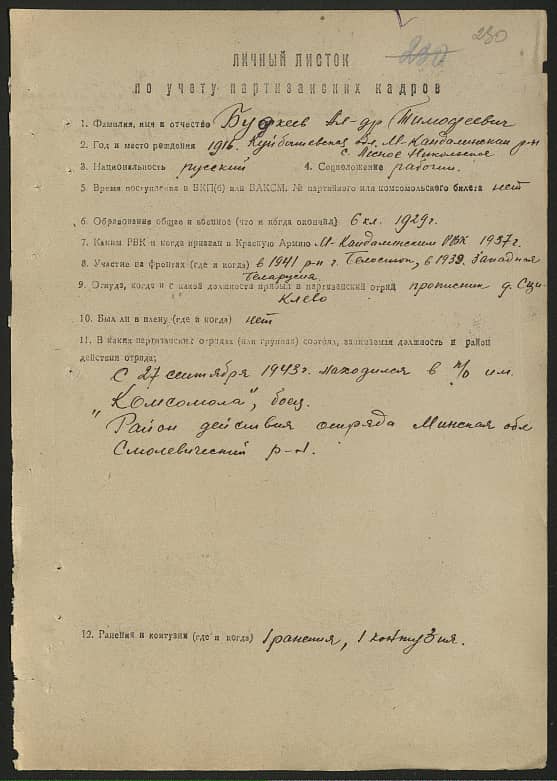 230 230
ЛИЧНЫЙ ЛИСТОК
по учету партизанских кадров
1. Фамилия, имя и отчество Ал-др Тимофеевич
2. Год и место рождения 1916. Куйбышевская обл. М-Кандалинский р-н
с. Лесное Никольское
3. Национальность русский 4. Соцположение рабочий.
5. Время поступления в ВКП(б) или ВЛКСМ. № партийного или комсомольского билета нет
6. Образование общее и военное (что и когда окончил) 6 кл. 1929 г.
7. Каким РВК и когда призван в Красную Армию М-Кандалинским РВК 1937 г.
8. Участие на фронтах (где и когда) в 1941 р-н г. Белосток, в 1939. Западная
Беларусия
9. Откуда, когда и с какой должности прибыл в партизанский отряд д.
10. Был ли в плену (где и когда) нет
11. В каких партизанских отрядах (или группах) состоял, занимаемая должность и район
действия отряда;
С 27 сентября 1943 г. находился в п/о им.
"Комсомола", боец.
Район действия отряда Минская обл
Смолевический р-н.
12. Ранения и контузии (где и когда) 1 ранения, 1 контузия.